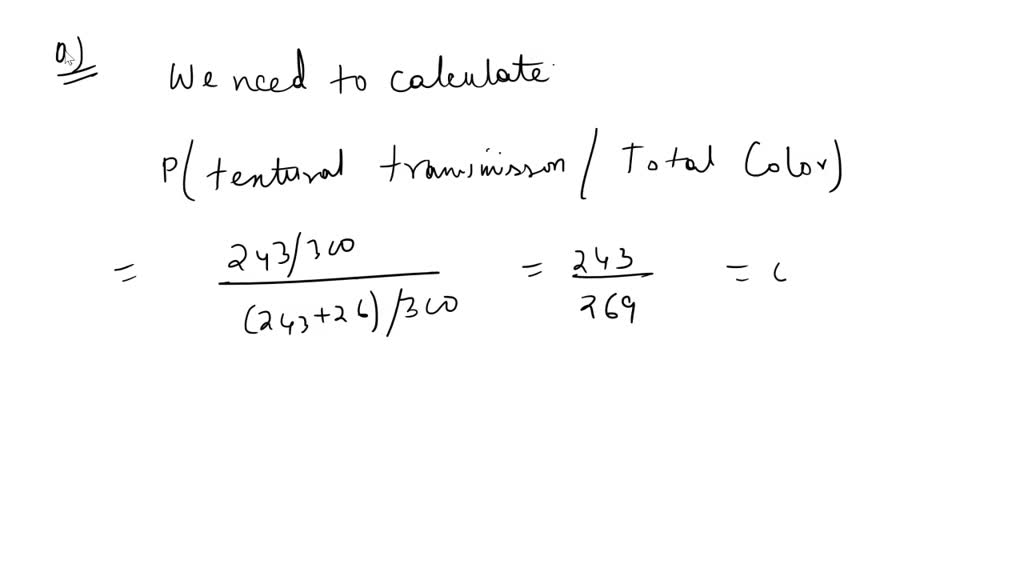 a)
We need to calculate
P(textural transmission / Total Color)
= 243/300 / (243+26)/300 = 243/269 = 0